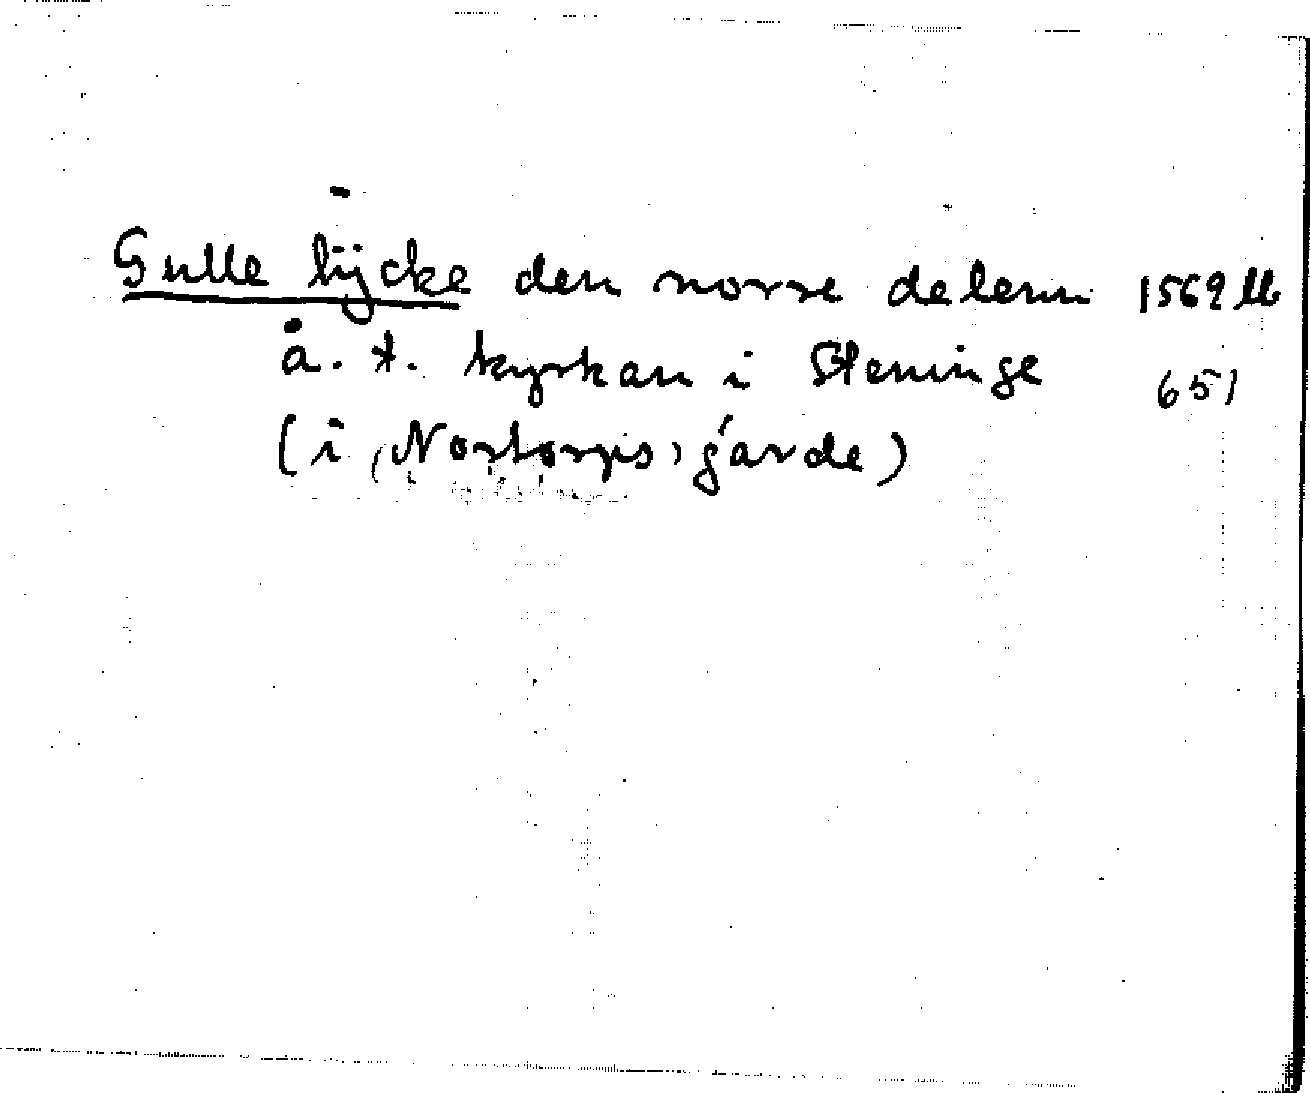 Gulle lÿcke den norre delenn 1569 lb
å. t. kyrkan i Steninge 651
(i "Nortorps" garde)